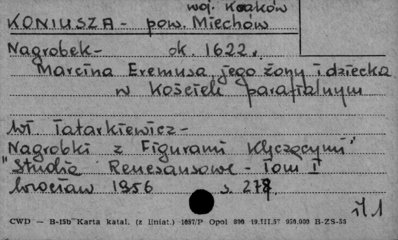 woj. Kraków
KONIUSZA - pow. Miechów
Nagrobek - ok. 1622.
Marcina Eremusa, jego żony i dziecka
w kościele parafialnym
Wł Tatarkiewicz -
Nagrobki z Figurami Klęczącymi"
"Studia Renesansowe - Tom I
Wrocław 1956 s. 278,
il 1
CWD — B-15b Karta katal. (z liniat.) 1657/P Opol B-ZS-55